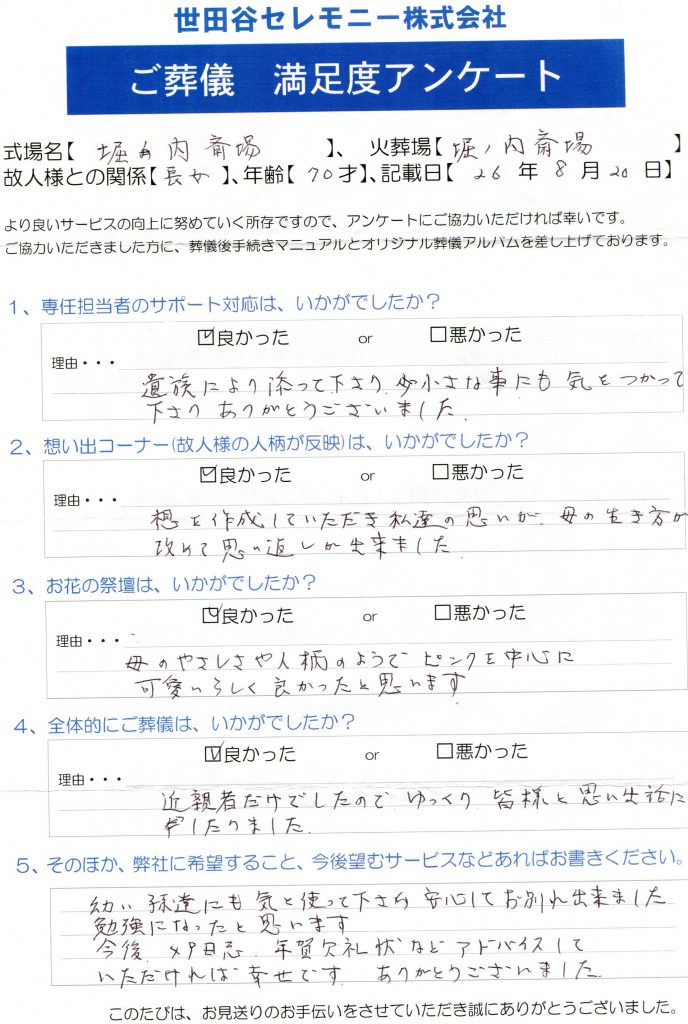 世田谷セレモニー株式会社
ご葬儀 満足度アンケート
式場名【 堀ノ内斎場 】、 火葬場【 堀ノ内斎場 】
故人様との関係【 長女 】、年齢【 70才】、記載日【 26 年 8 月 20 日】
より良いサービスの向上に努めていく所存ですので、アンケートにご協力いただければ幸いです。
ご協力いただきました方に、葬儀後手続きマニュアルとオリジナル葬儀アルバムを差し上げております。
1、専任担当者のサポート対応は、いかがでしたか？
☑良かった or □悪かった
理由・・・
遺族により添って下さり 少小さな事にも 気をつかって
下さり ありがとうございました.
2、想い出コーナー(故人様の人柄が反映)は、いかがでしたか？
☑良かった or □悪かった
理由・・・
想を作成していただき 私達の思いが、母の生き方が
改めて思い返しが出来ました.
3、お花の祭壇は、いかがでしたか？
☑良かった or □悪かった
理由・・・
母のやさしさや人柄のようで ピンクを中心に
可愛いらしく良かったと思います
4、全体的にご葬儀は、いかがでしたか？
☑良かった or □悪かった
理由・・・
近親者だけでしたので ゆっくり 皆様と思い出話に
したりました.
5、そのほか、弊社に希望すること、今後望むサービスなどあればお書きください。
幼い孫達にも気を使って下さり 安心してお別れ出来ました
勉強になったと思います
今後、49日忌、年賀欠礼状など アドバイスして
いただければ幸せです ありがとうございました.
このたびは、お見送りのお手伝いをさせていただき誠にありがとうございました。